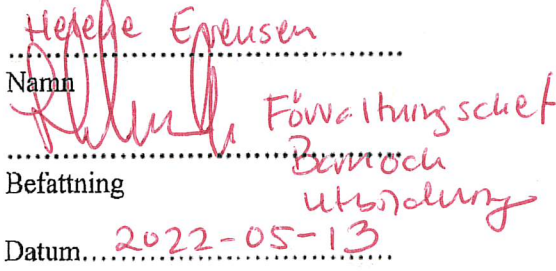 Helene Evensen
Namn
Förvaltningschef
Barn och
Befattning
utbildning
Datum 2022-05-13